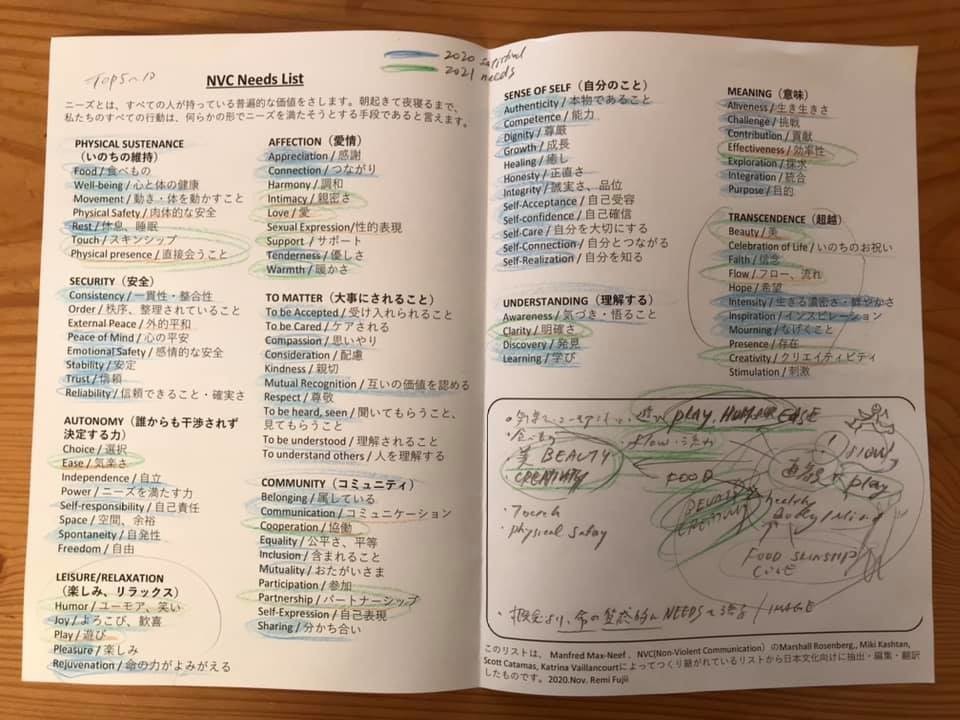 Top5~10
2020 satisfied
2021 needs
NVC Needs List
ニーズとは、すべての人が持っている普遍的な価値をさします。朝起きて夜寝るまで、
私たちのすべての行動は、何らかの形でニーズを満たそうとする手段であると言えます。
PHYSICAL SUSTENANCE
(いのちの維持)
Food / 食べもの
Well-being / 心と体の健康
Movement / 動き・体を動かすこと
Physical Safety / 肉体的な安全
Rest / 休息、睡眠
Touch / スキンシップ
Physical presence / 直接会うこと
SECURITY (安全)
Consistency / 一貫性・整合性
Order / 秩序、整理されていること
External Peace / 外的平和
Peace of Mind / 心の平安
Emotional Safety / 感情的な安全
Stability / 安定
Trust / 信頼
Reliability / 信頼できること・確実さ
AUTONOMY (誰からも干渉されず
決定する力)
Choice / 選択
Ease / 気楽さ
Independence / 自立
Power / ニーズを満たす力
Self-responsibility / 自己責任
Space / 空間、余裕
Spontaneity / 自発性
Freedom / 自由
LEISURE/RELAXATION
(楽しみ、リラックス)
Humor / ユーモア、笑い
Joy / よろこび、歓喜
Play / 遊び
Pleasure / 楽しみ
Rejuvenation / 命の力がよみがえる
AFFECTION (愛情)
Appreciation / 感謝
Connection / つながり
Harmony / 調和
Intimacy / 親密さ
Love / 愛
Sexual Expression/性的表現
Support / サポート
Tenderness / 優しさ
Warmth / 暖かさ
TO MATTER (大事にされること)
To be Accepted / 受け入れられること
To be Cared / ケアされる
Compassion / 思いやり
Consideration / 配慮
Kindness / 親切
Mutual Recognition / 互いの価値を認める
Respect / 尊敬
To be heard, seen / 聞いてもらうこと、
見てもらうこと
To be understood / 理解されること
To understand others / 人を理解する
COMMUNITY (コミュニティ)
Belonging / 属している
Communication / コミュニケーション
Cooperation / 協働
Equality / 公平さ、平等
Inclusion / 含まれること
Mutuality / おたがいさま
Participation / 参加
Partnership / パートナーシップ
Self-Expression / 自己表現
Sharing / 分かち合い
SENSE OF SELF (自分のこと)
Authenticity / 本物であること
Competence / 能力
Dignity / 尊厳
Growth / 成長
Healing / 癒し
Honesty / 正直さ
Integrity / 誠実さ、品位
Self-Acceptance / 自己受容
Self-confidence / 自己確信
Self-Care / 自分を大切にする
Self-Connection / 自分とつながる
Self-Realization / 自分を知る
UNDERSTANDING (理解する)
Awareness / 気づき・悟ること
Clarity / 明確さ
Discovery / 発見
Learning / 学び
MEANING (意味)
Aliveness / 生き生きさ
Challenge / 挑戦
Contribution / 貢献
Effectiveness / 効率性
Exploration / 探求
Integration / 統合
Purpose / 目的
TRANSCENDENCE (超越)
Beauty / 美
Celebration of Life / いのちのお祝い
Faith / 信念
Flow / フロー、流れ
Hope / 希望
Intensity / 生きる濃密さ・鮮やかさ
Inspiration / インスピレーション
Mourning / なげくこと
Presence / 存在
Creativity / クリエイティビティ
Stimulation / 刺激
遊び play, HUMOR EASE
・食べもの
・flow・流れ
・美 BEAUTY
・CREATIVITY
FOOD
FLOW
play
BEAUTY
CREATIVITY
healthy
Body/Mind
・Touch
・physical safety
FOOD SKINSHIP
NEEDS
IMAGE
このリストは、 Manfred Max-Neef 、NVC(Non-Violent Communication) のMarshall Rosenberg,, Miki Kashtan,
Scott Catamas, Katrina Vaillancourtによってつくり継がれているリストから日本文化向けに抽出・編集・翻訳
したものです。2020.Nov. Remi Fujii